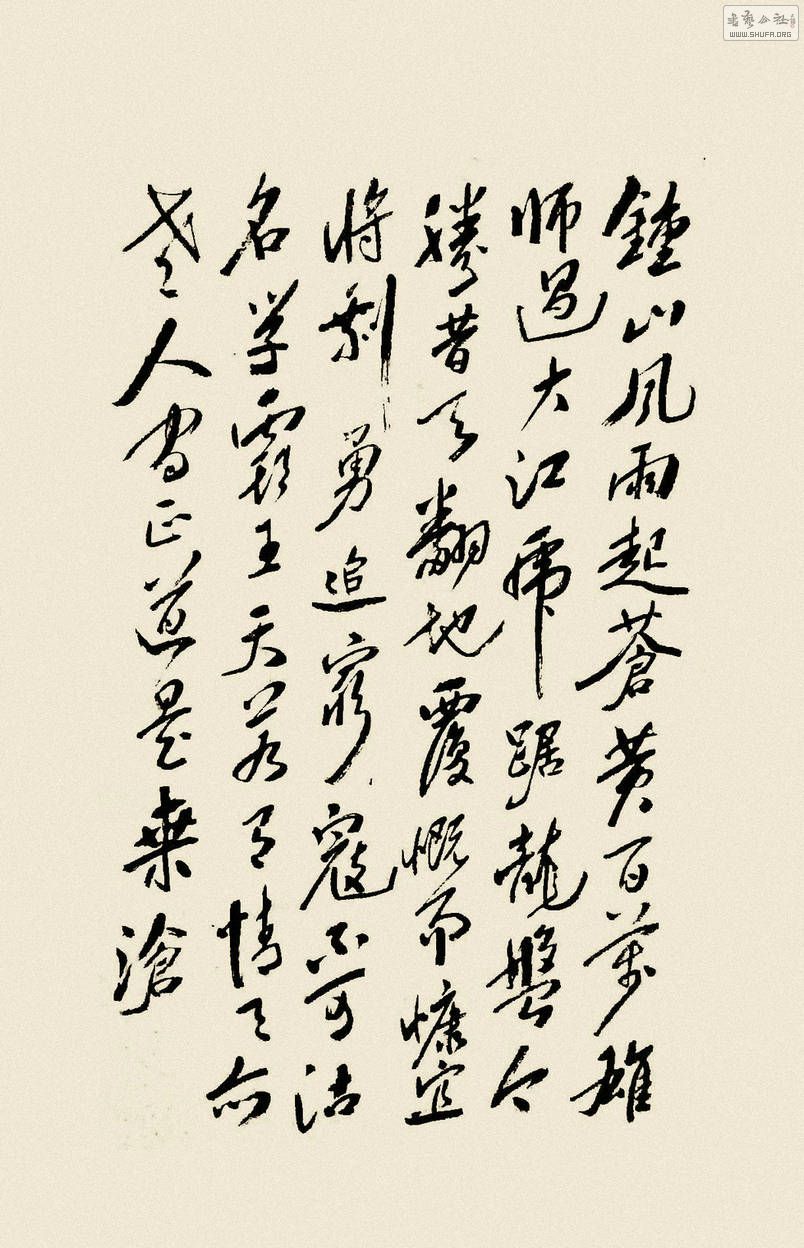 鍾山風雨起蒼黃百萬雄
師過大江虎踞龍盤今
勝昔天翻地覆慨而慷宜
將剩勇追窮寇不可沽
名學霸王天若有情天亦
老人間正道是桑滄
書藝公社
WWW.SHUFA.ORG